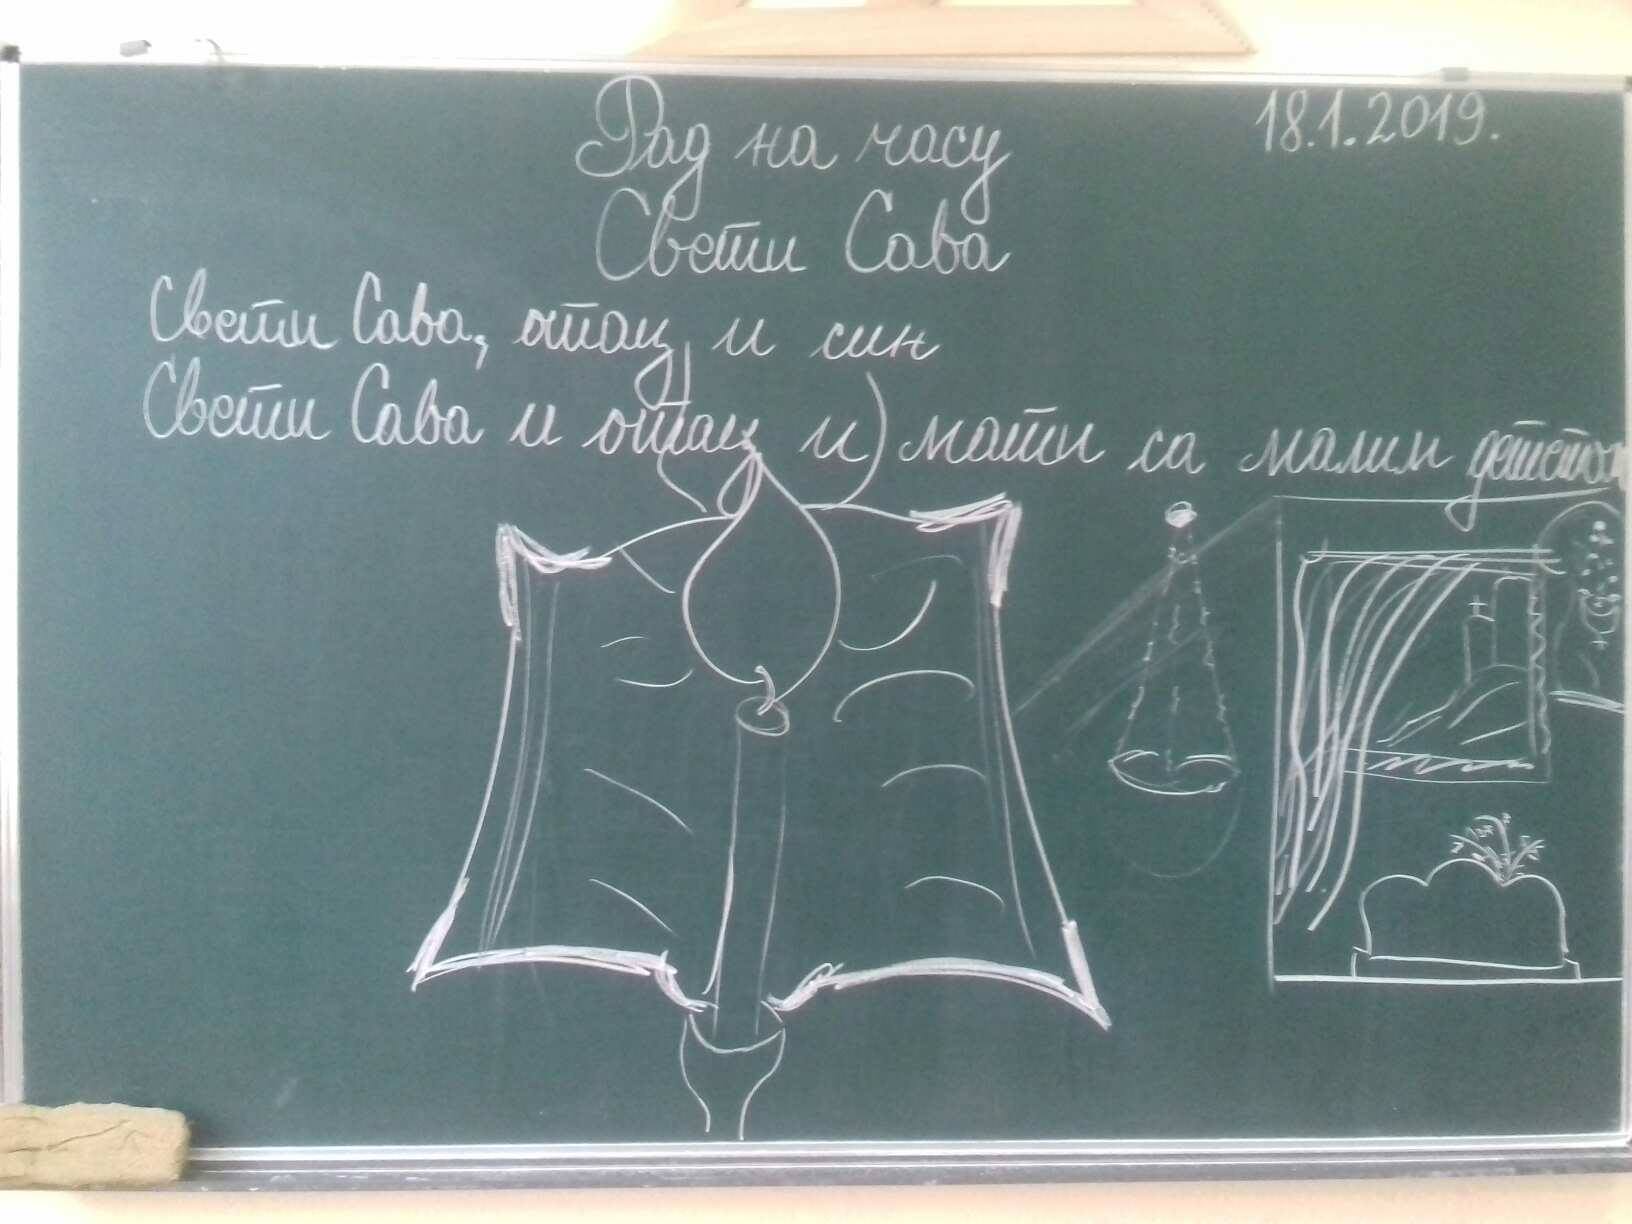 Рад на часу
18.1.2019.
Свети Сава
Свети Сава, отац и син
Свети Сава и отац и мати са малим